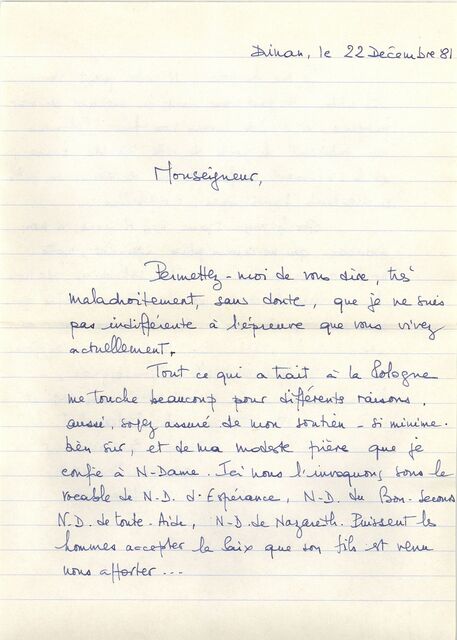 Dinan, le 22 Décembre 81
Monseigneur,
Permettez-moi de vous dire, très
maladroitement, sans doute, que je ne suis
pas indifférente à l'épreuve que vous vivez
actuellement.
Tout ce qui a trait à la Pologne
me touche beaucoup pour différentes raisons.
aussi, soyez assuré de mon soutien - si minime.
bien sûr, et de ma modeste prière que je
confie à N-Dame. Ici nous l'invoquons sous le
vocable de N.D. d'Espérance, N-D. du Bon-Secours
N.D. de toute-Aide, N-D. de Nazareth. Puissent les
hommes accepter la Paix que son fils est venu
nous apporter...